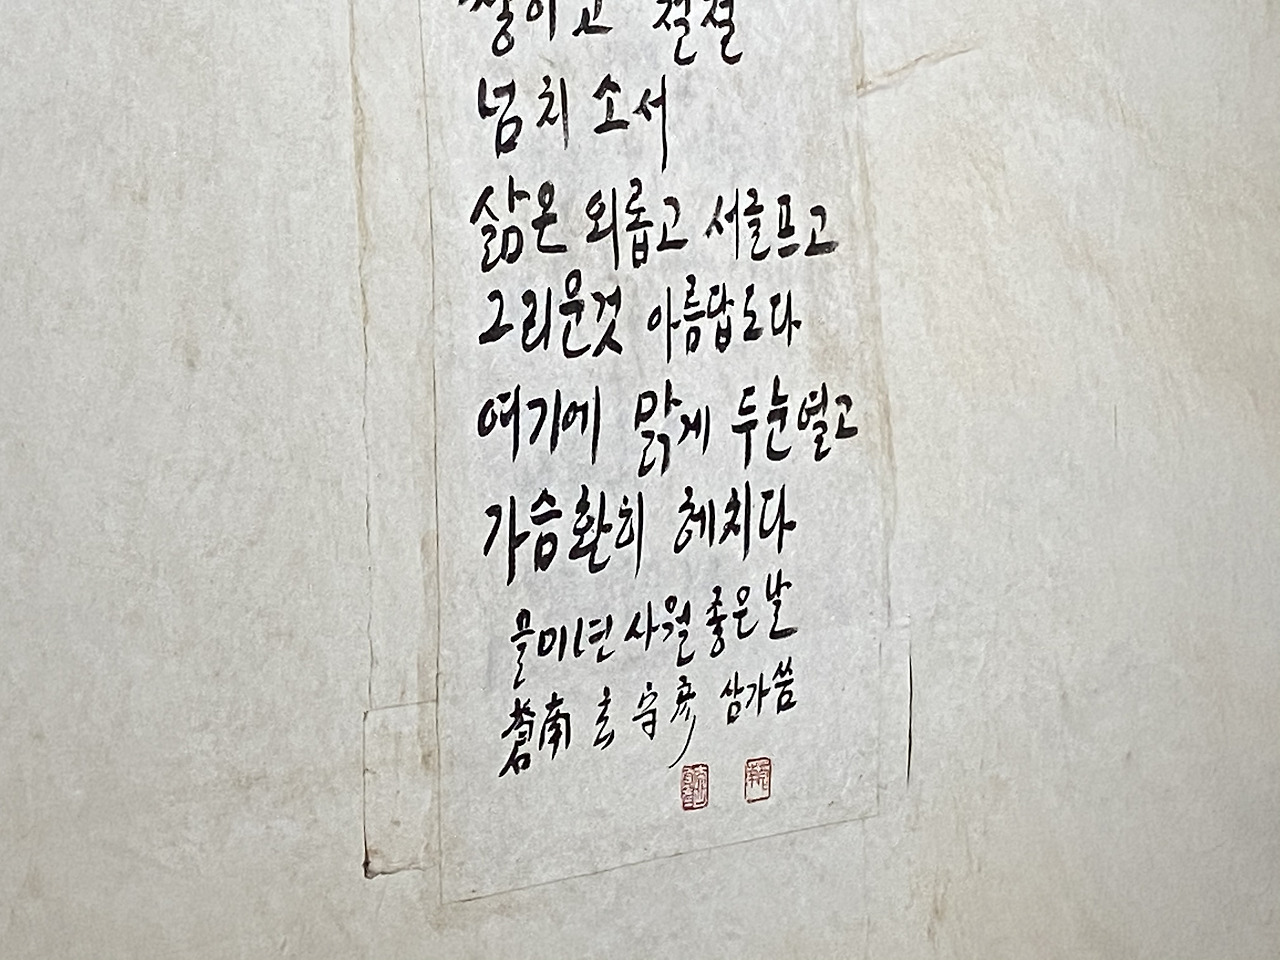 철철
넘치소서
삶은 외롭고 서글프고
그리운것 아름답도다
여기에 맑게 두눈열고
가슴환히 헤치다
을미년 사월 좋은날
蒼南 玄守彦 삼가씀